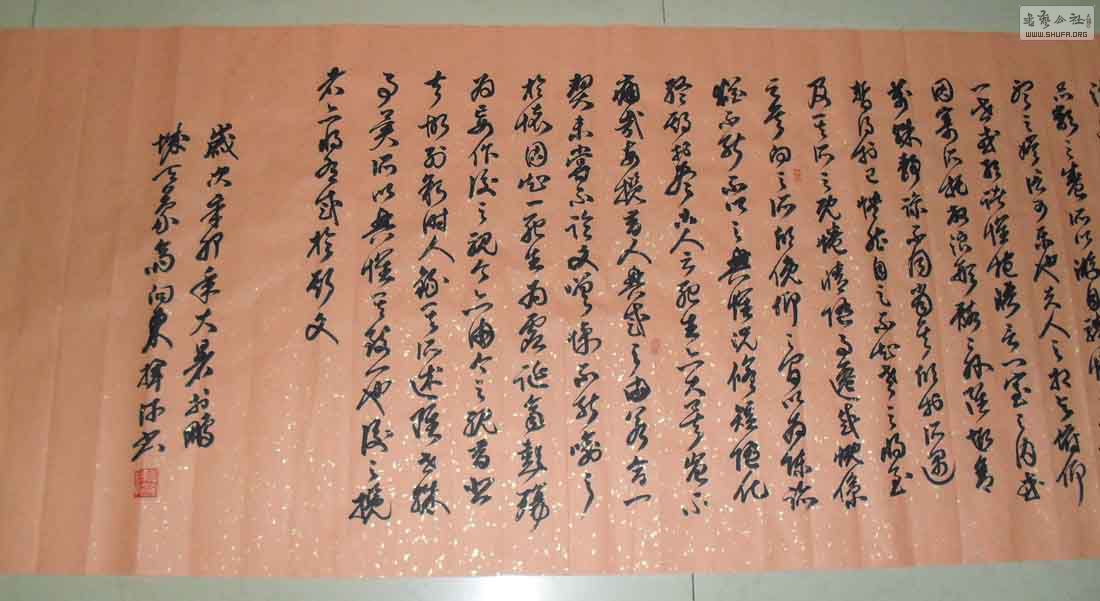 品類之盛所以游目騁懷
聽之娛信可樂也夫人之相與俯仰
一世或取諸懷抱晤言一室之內或
因寄所托放浪形骸之外雖趣舍
萬殊靜躁不同當其欣於所遇
暫得於己快然自足不知老之將至
及其所之既惓情隨事遷感慨係
之矣向之所欣俛仰之間以為陳跡
猶不能不以之興懷況修短隨化
終期於盡古人云死生亦大矣豈不
痛哉每攬昔人興感之由若合一
契未嘗不臨文嗟悼不能喻之
於懷固知一死生為虛誕齊彭殤
為妄作後之視今亦由今之視昔悲
夫故列敘時人錄其所述雖世殊
事異所以興懷其致一也後之攬
者亦將有感於斯文
歲次辛卯年大暑於鵬
城天象高向東揮汗書
書藝公社
WWW.SHUFA.ORG